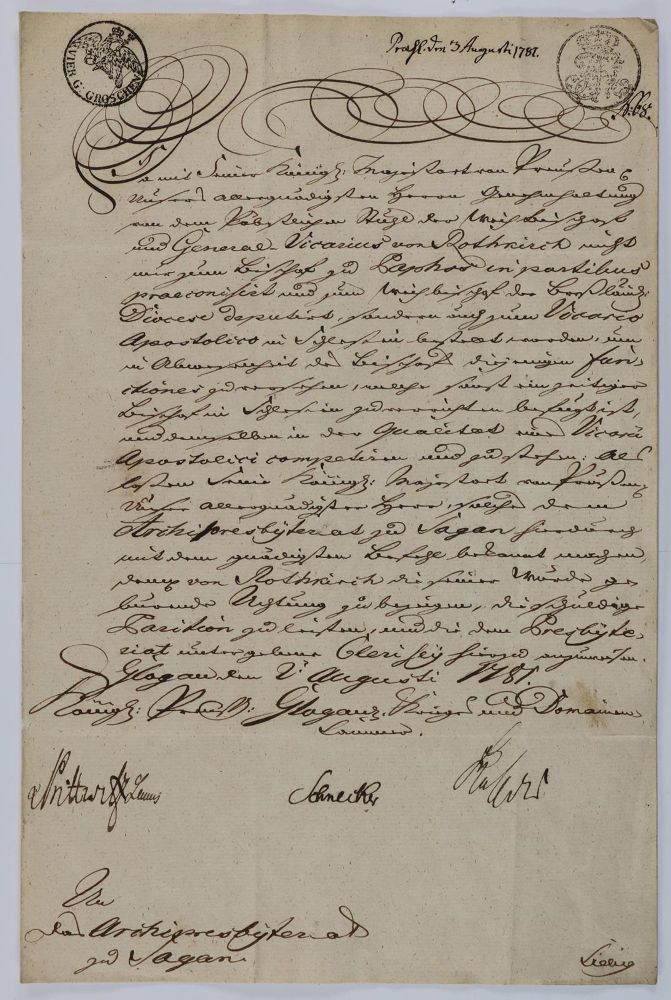 VIER G. GROSCHEN
Praes. den 3 Augusti 1781.
Da mit Seiner Königl: Majestaet von Preußen
Unsers allergnädigsten Herrn Genehmhaltung
von dem Päbstlichen Stuhl der Weih Bischoff
und General-Vicarius von Rothkirch nicht
nur zum Bischof zu Paphos in partibus
praeconisirt und zum Weihbischof der Breßlausch:
Dioces deputirt, sondern auch zum Vicario
Apostolico in Schlesien bestellt worden, um
in Abwesenheit des Bischofs diejenigen func-
tiones zu versehen, welche sonst ein zeitiger
Bischof in Schlesien zu verrichten befugt ist,
und demselben in der Qualitaet eines Vicarii
Apostolici competiren und zustehen; Als
laßen Seine Königl: Majestaet von Preußen
Unser allergnädigster Herr, solches dem
Archipresbyteriat zu Sagan hierdurch
mit dem gnädigsten Befehl bekannt machen
dem von Rothkirch die seiner Würde ge-
bührende Achtung zu bezeigen, die schuldige
Parition zu leisten, und die dem Presbyte-
riat untergebene Clerisey hierzu anzuweisen.
Glogau den 2t Augusti 1781.
Königl: Preuß: Glogausch. Krieges und Domainen
Cammer.
Schnecker
An
das Archipresbyteriat
zu Sagan